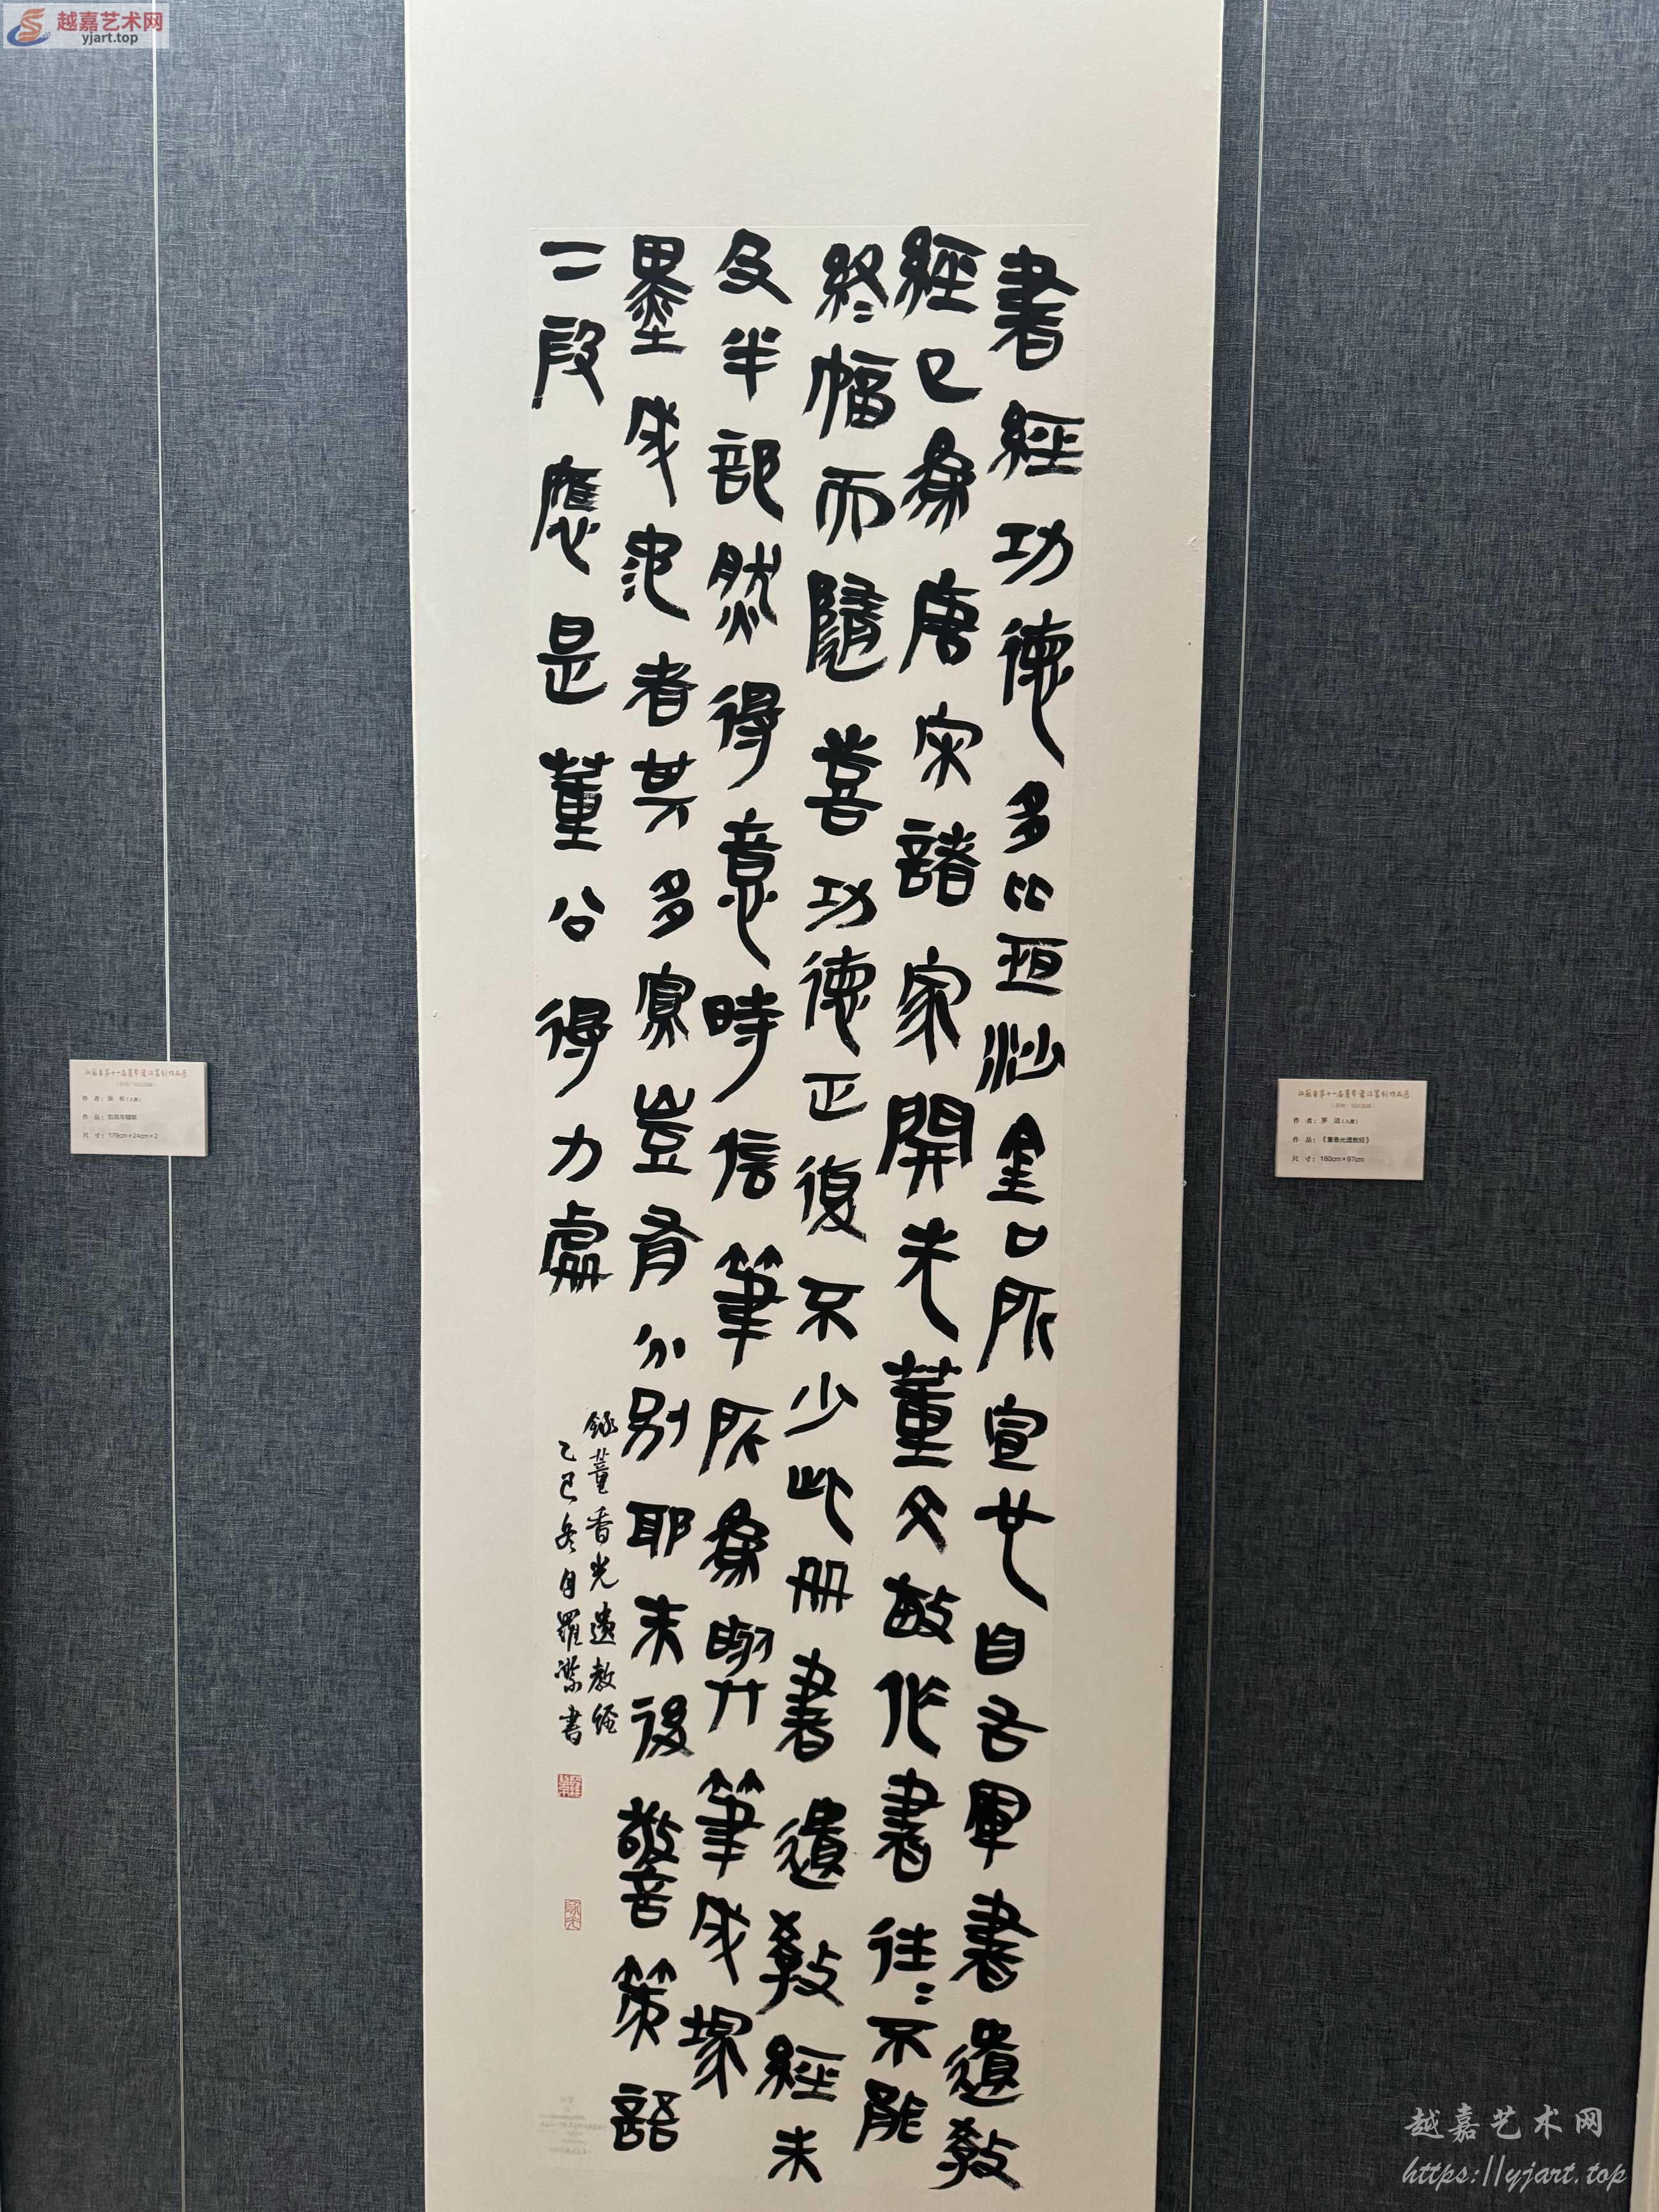 越嘉艺术网
yjart.top
書經功德多比恒沙金口所宣廿自右軍書遺教
經已為唐宋諸家開先董文敏作書往〻不能
終〻幅而隨喜功德正復不少此冊書遺教經未
及半部然得意時信筆所為弊筆成塚
墨成池者其多寡豈有分別耶末後警策語
一段應是董公得力處
錄董香光遺教經
乙巳冬月羅潔書
江苏省第十一届青年书法篆刻作品展
作 品：如良冬暖联
尺 寸：179cm×24cm×2
江苏省第十一届青年书法篆刻作品展
作 者：罗 洁（入展）
作 品：《董香光遗教经》
尺 寸：180cm×97cm
越嘉艺术网
https://yjart.top